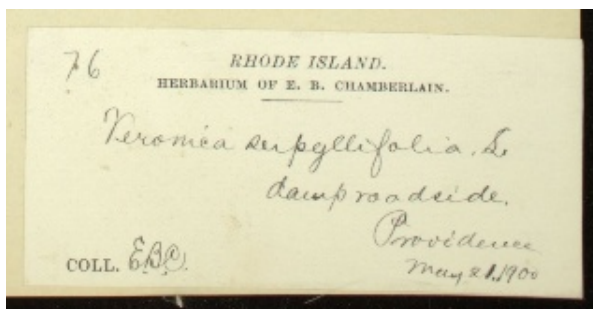 76
RHODE ISLAND.
HERBARIUM OF E. B. CHAMBERLAIN.
Veronica serpyllifolia. L
damp roadside.
Providence
May 21, 1900
COLL. EBC.